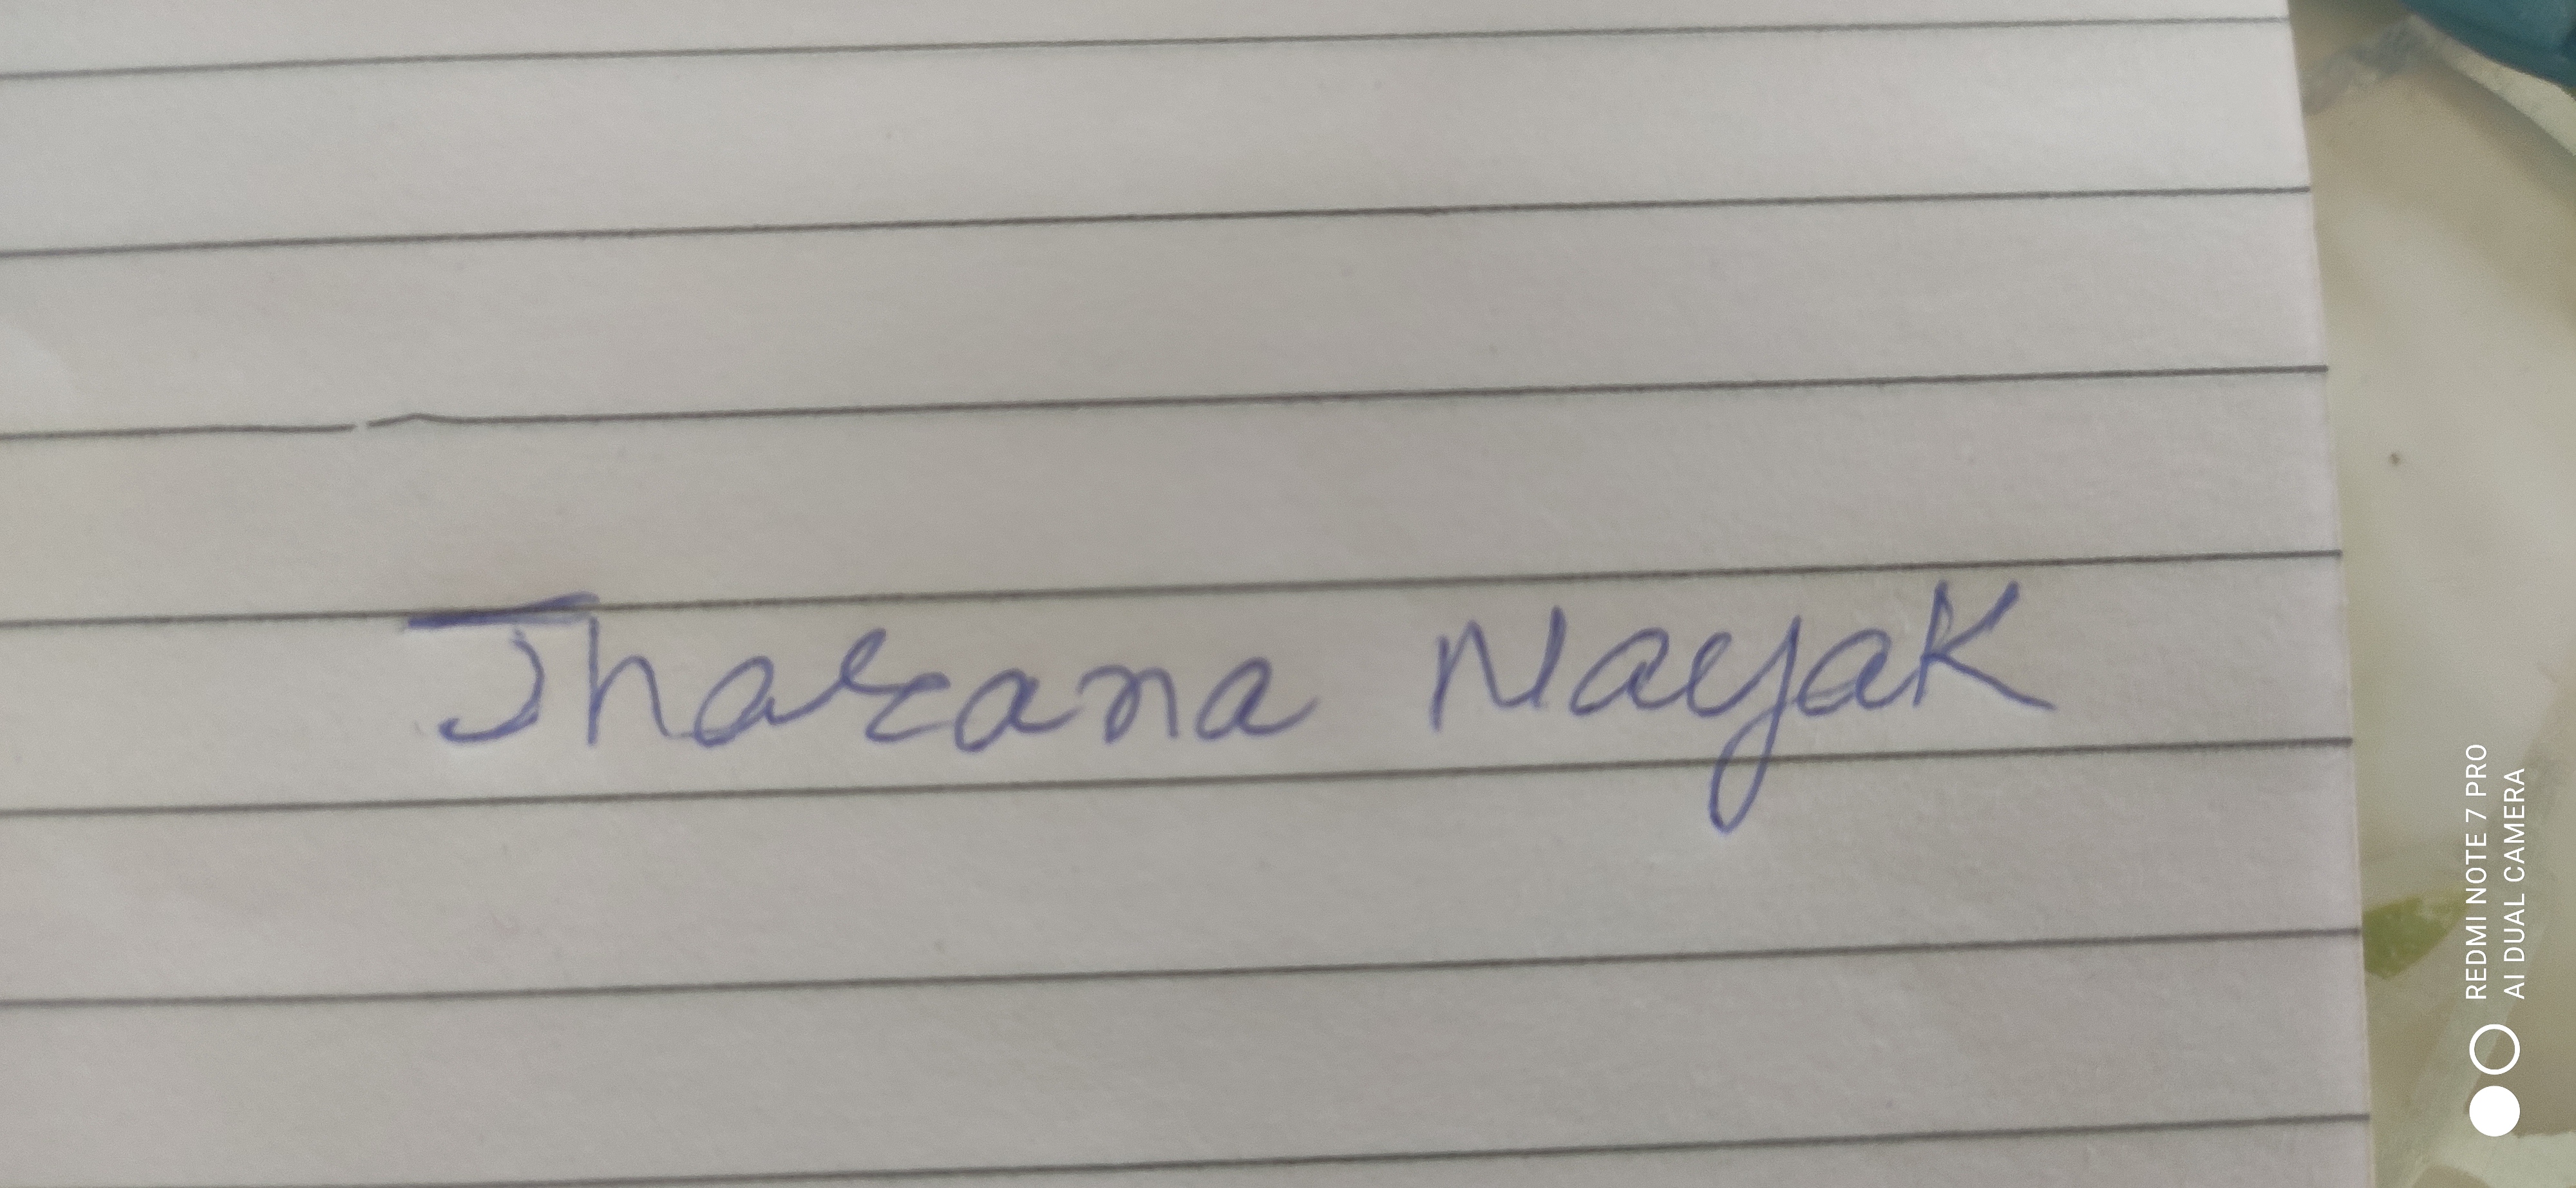 Jharana Nayak
REDMI NOTE 7 PRO
AI DUAL CAMERA